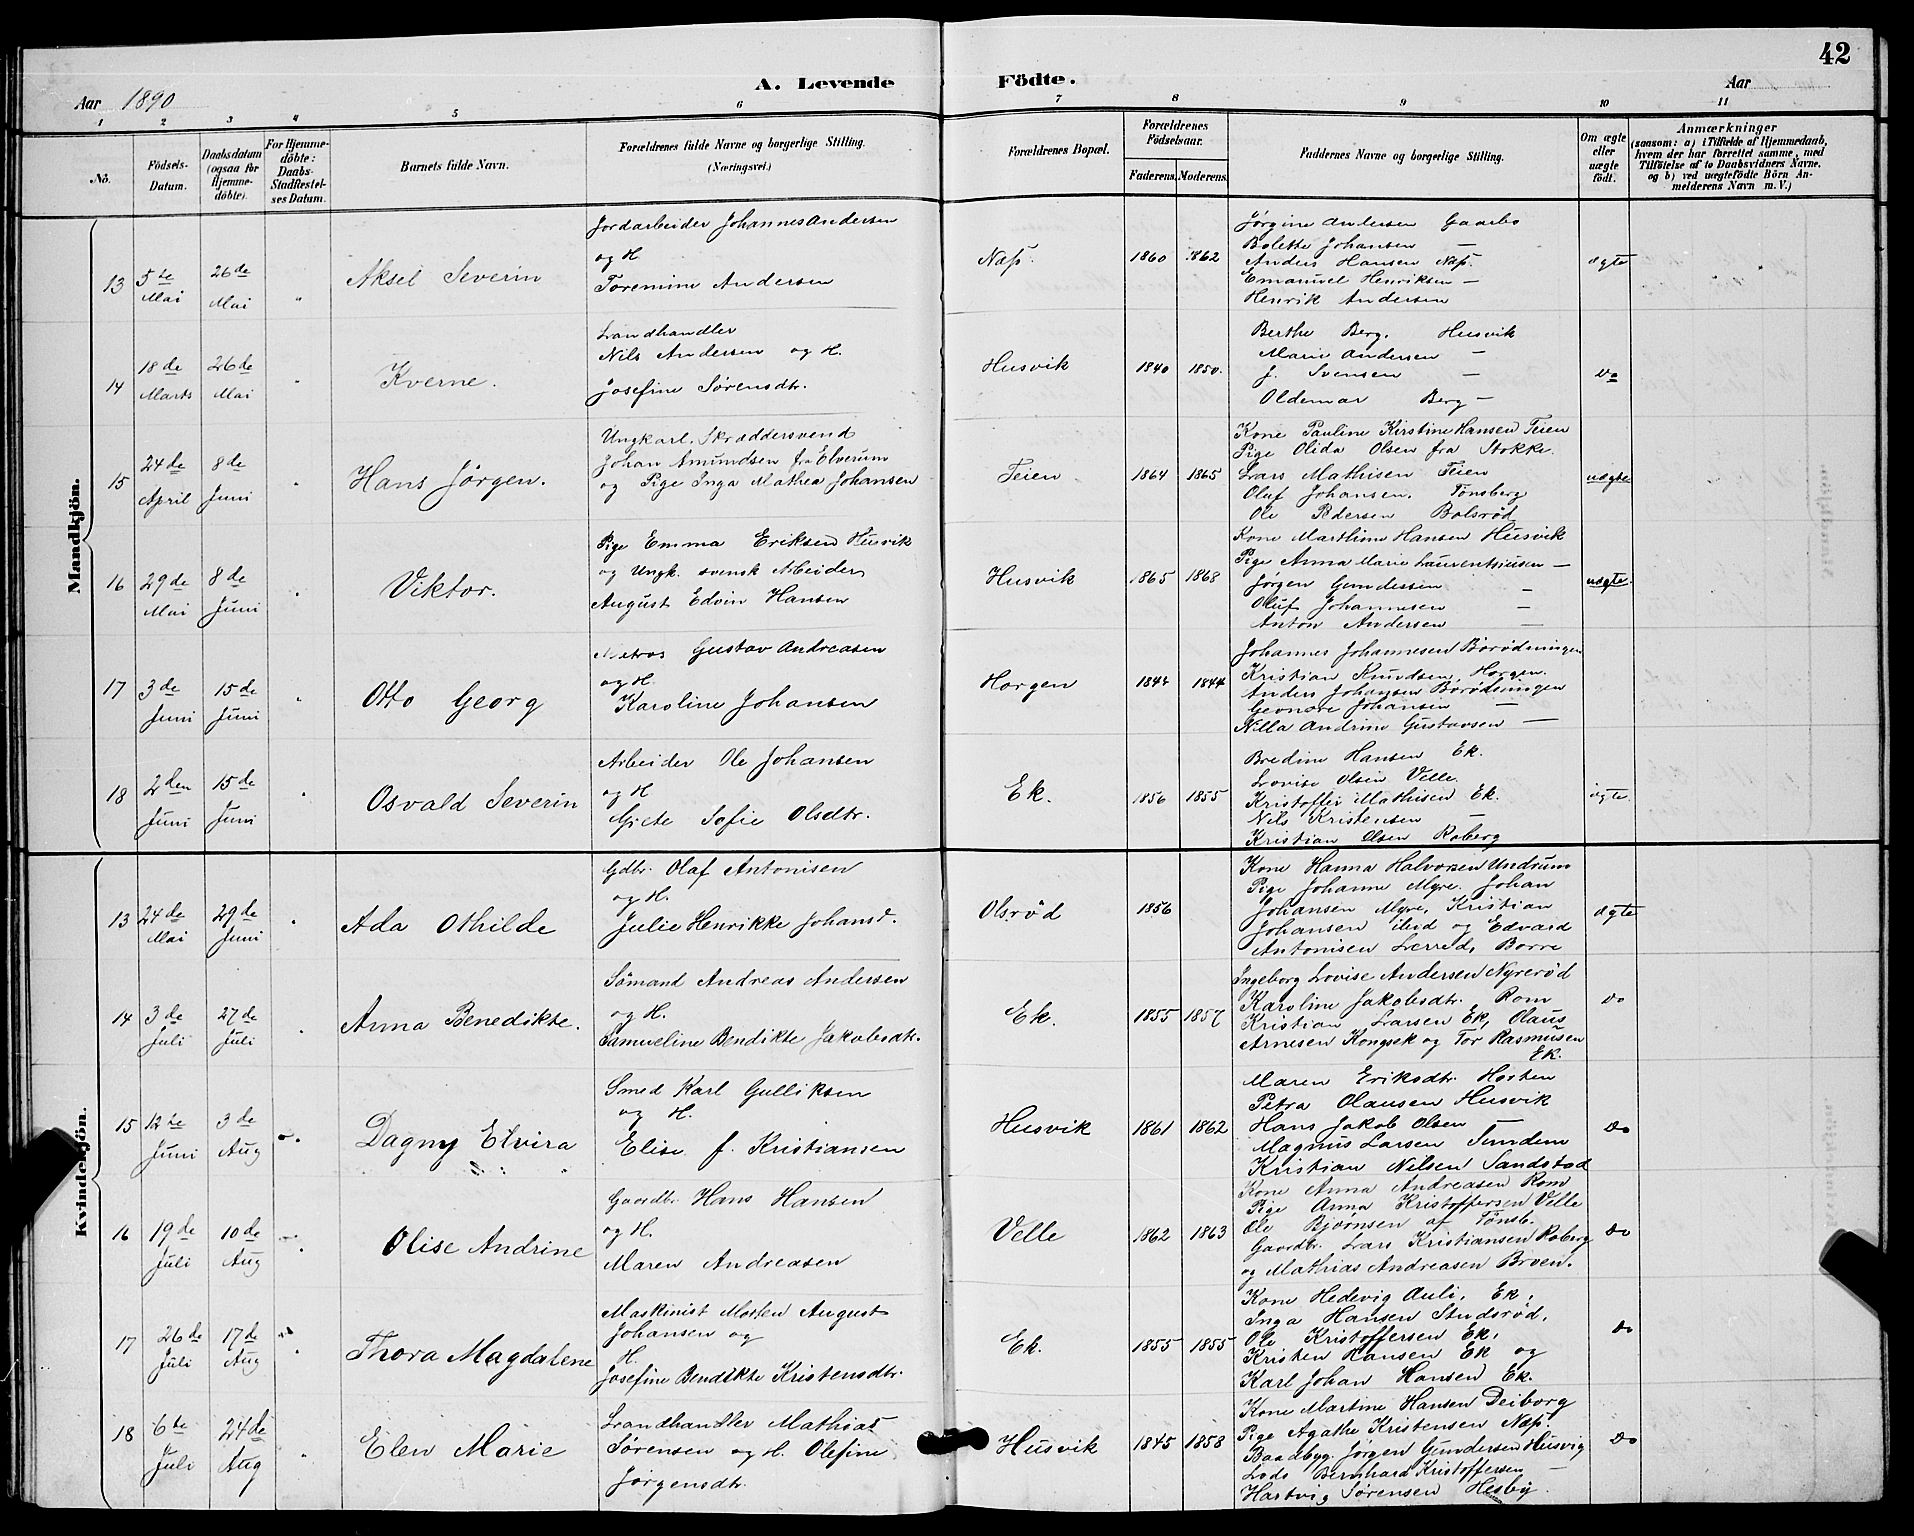 42
A. Levende Födte.
Aar 1890
Aar
1 2 3 4 5 6 7 8 9 10 11
No.
Födsels-Datum.
Daabsdatum (ogsaa for Hjemme-döbte).
For Hjemme-döbte: Daabs-Stadfæstel-ses Datum.
Barnets fulde Navn.
Forældrenes fulde Navne og borgerlige Stilling. (Næringsvei.)
Forældrenes Bopæl.
Forældrenes Födselsaar.
Faderens. Moderens.
Faddernes Navne og borgerlige Stilling.
Om ægte eller uægte födt.
Anmærkninger
(saasom: a) i Tilfælde af Hjemmedaab, hvem der har forrettet samme, med Tilföielse af to Daabsvidners Navne, og b) ved uægtefödte Börn An-melderens Navn m. V.)
Mandkjön.
13 5te Mai 26de Mai " Aksel Severin
Jordarbeider Johannes Andersen
og H
Toremine Andersen
Næs. 1860 1862
Jørgine Andersen Gaarbo
Bolette Johansen —
Anders Hansen Næs.
Emanuel Henriksen —
Henrik Andersen
ægte
14 18de Marts 26de Mai " Kverne.
Landhandler
Nils Andersen og H.
Josefine Sørensdtr.
Husvik 1840 1850.
Berthe Berg. Husvik
Marie Andersen —
J. Svensen —
Oldemar Berg —
Do
15 24de April 8de Juni " Hans Jörgen.
Ungkarl. Skræddersvend
Johan Amundsen fra Elverum
og Pige Inga Mathea Johansen
Teien 1864 1865
Kone Pauline Kirstine Hansen Teien
Pige Olida Olsen fra Stokke.
Lars Mathisen Teien
Oluf Johansen. Tönsberg
Ole Pedersen Bolsrød
uægte
16 29de Mai 8de Juni " Viktor.
Pige Emma Eriksen Husvik
og Ungk. svensk Arbeider
August Edvin Hansen
Husvik 1865 1868
Kone Marthine Hansen Husvik
Pige Anna Marie Laurentsiusen —
Jørgen Gundersen —
Oluf Johannesen —
Anton Andersen —
uægte.
17 3de Juni 15de Juni " Otto Georg
Matros Gustav Andreasen
og H.
Karoline Johansen
Horgen 1844
Johannes Johannesen
Kristian Knudsen, Horgen.
Anders Johansen
Johansen —
Nilla Andrine Gustavsen —
18 2den Juni 15de Juni " Osvald Severin
Arbeider Ole Johansen
og H
Grete Sofie Olsdtr.
Ek. 1856 1855
Bredine Hansen Ek.
Lovise Olsen Velle.
Kristoffer Mathisen Ek.
Nils Kristensen —
Kristian Olsen Roberg
ægte.
Kvindekjön.
13 24de Mai 29de Juni " Ada Othilde
Gdbr. Olaf Antonisen
og H.
Julie Henrikke Johansd.
Olsrød 1856
Kone Hanna Halvorsen Undrum
Pige Johanne Myre. Johan
Johansen Myre, Kristian
Johansen ibid og Edvard
Antonisen Lerred, Borre
ægte
14 3de Juli 27de Juli " Anna Benedikte.
Sömand Andreas Andersen
og H.
Samueline Bendikte Jakobsdtr.
Ek. 1855 1857
Ingeborg Lovise Andersen Nyrerød
Karoline Jakobsdtr. Rom
Kristian Larsen Ek, Olaus
Arnesen Kongsek og Tor Rasmusen
Ek.
Do
15 12te Juni 3de Aug " Dagny Elvira
Smed Karl Gulliksen
og H.
Elise f. Kristiansen
Husvik 1861 1862
Maren Eriksdtr. Horten
Petra Olausen Husvik
Hans Jakob Olsen —
Magnus Larsen Sundem
Kristian Nilsen Sandstad
Do
16 19de Juli 10de Aug " Olise Andrine
Gaardbr. Hans Hansen
og H.
Maren Andreasen
Velle 1862 1863
Kone Anna Andreasen Rom
Pige Anna Kristoffersen Velle
Ole Bjørnsen af Tønsb.
Gaardbr. Lars Kristiansen Roberg
og Mathias Andreasen Broen.
Do
17 26de Juli 17de Aug " Thora Magdalene
Maskinist Morten August
Johansen og
H.
Josefine Bendikte Kristensdtr.
Ek. 1855 1855
Kone Hedevig Auli, Ek,
Inga Hansen Studsrød,
Ole Kristoffersen Ek,
Kristen Hansen Ek og
Karl Johan Hansen Ek.
Do
18 6te Juli 24de Aug " Elen Marie
Landhandler Mathias
Sørensen og H. Olefine
Jörgensdtr.
Husvik 1845 1858
Kone Martine Hansen Deiborg
Pige Agathe Kristensen Næs.
Baadbyg. Jørgen Gundersen Husvig
Lods Bernhard Kristoffersen —
Hartvig Sørensen Hesby.
Do